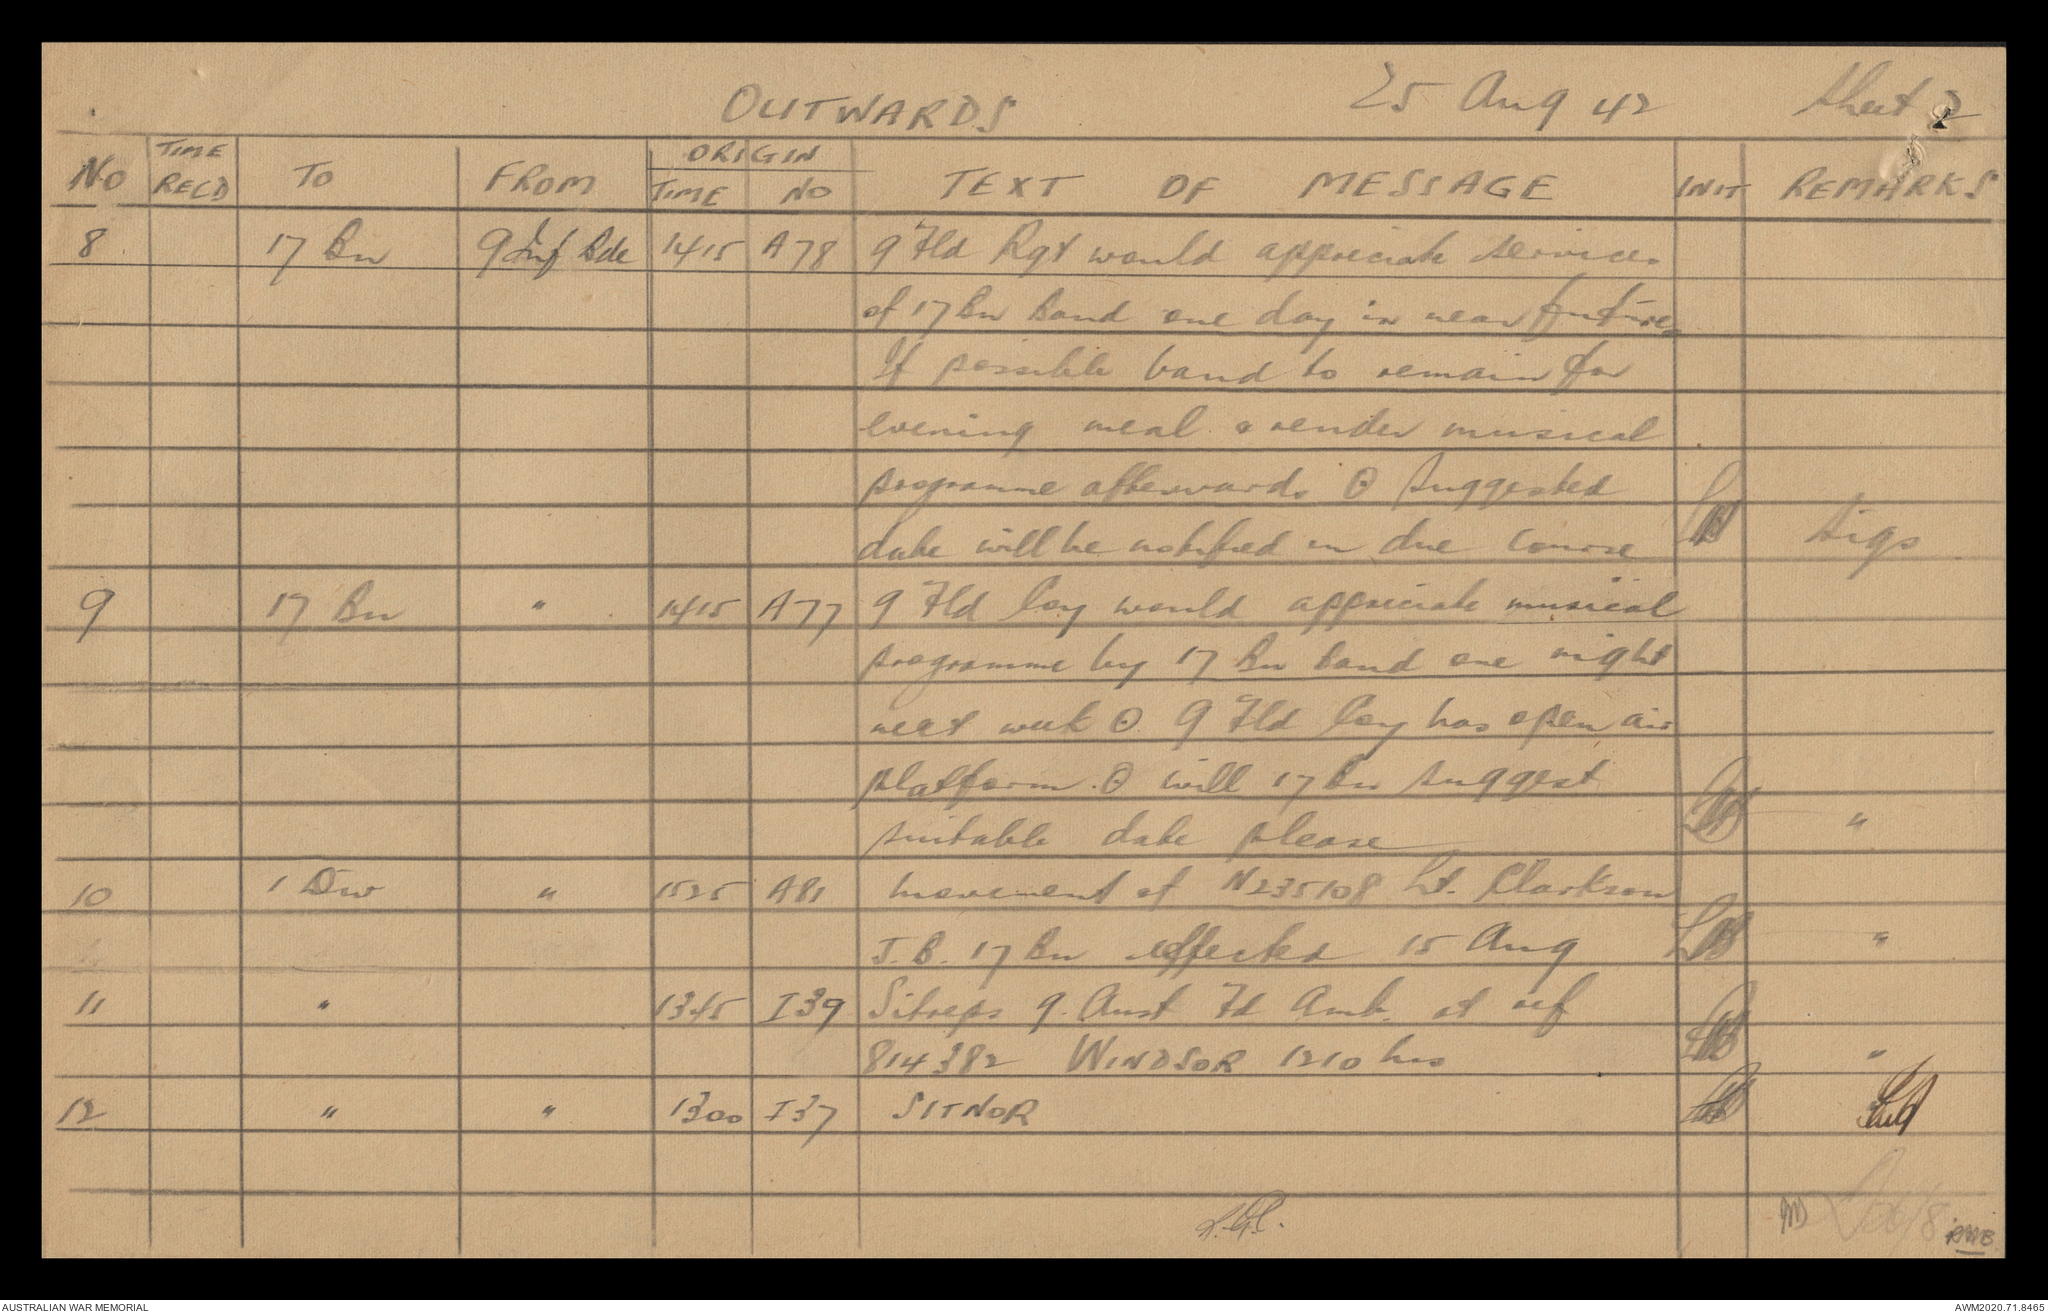 OUTWARDS 25 Aug 42 Sheet 2
No TIME RECD TO FROM ORIGIN TIME NO TEXT OF MESSAGE INIT REMARKS
8 17 Bn 9 Inf Bde 1415 A78 9 Fld Rgt would appreciate services
of 17 Bn Band one day in near future.
If possible band to remain for
evening meal & render musical
programme afterwards ⊙ Suggested
date will be notified in due course Sigs
9 17 Bn " 1415 A77 9 Fld Coy would appreciate musical
programme by 17 Bn band one night
next week ⊙ 9 Fld Coy has open air
platform. ⊙ will 17 Bn suggest
suitable date please "
10 1 Div " 1525 A81 movement of N235108 Lt. Clarkson
J.B. 17 Bn effected 15 Aug "
11 " 1345 I39 Sitreps 9. Aust Fd Amb. at ref
814382 WINDSOR 1210 hrs "
12 " " 1300 I37 SITNOR
AUSTRALIAN WAR MEMORIAL AWM2020.71.8465